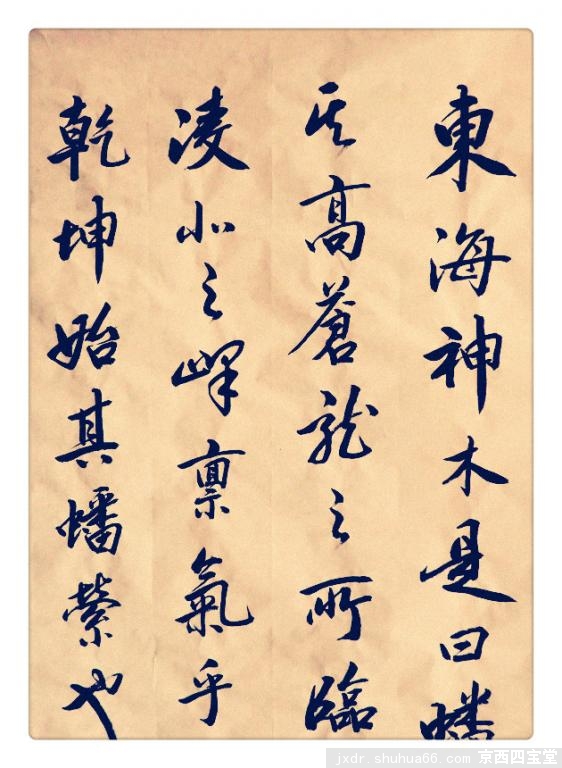 東海神木是曰蟠
其高蒼龍之所臨
凌之嶧禀氣乎
乾坤始其蟠縈也
jxdr.shuhua66.com 京西四宝堂